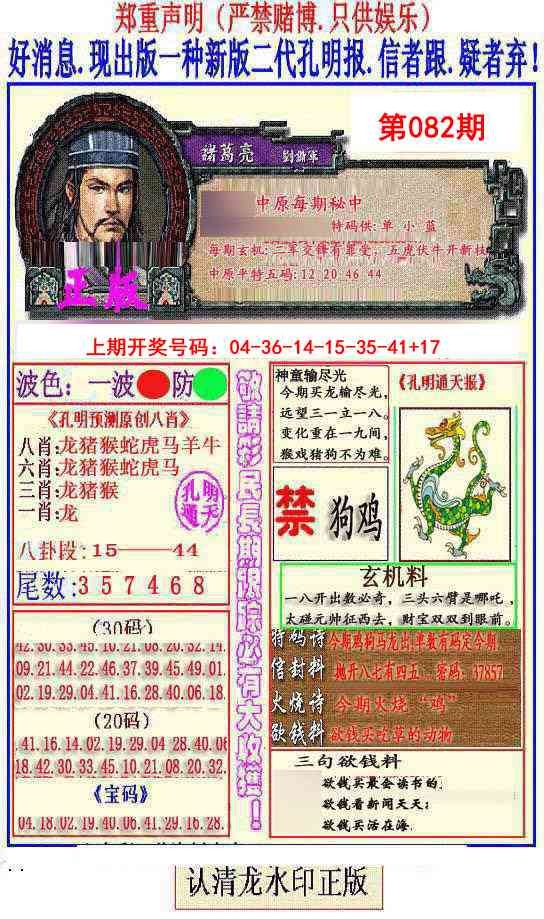 郑重声明（严禁赌博.只供娱乐）
好消息.现出版一种新版二代孔明报.信者跟.疑者弃！
第082期
諸葛亮 劉備軍
中原每期秘中
特码供: 单 小 蓝
每期玄机:二军交锋有罪受; 五虎伏牛开新枝
中原平特五码:12 20 46 44
正版
上期开奖号码: 04-36-14-15-35-41+17
波色: 一波 防
《孔明预测原创八肖》
八肖:龙猪猴蛇虎马羊牛
六肖:龙猪猴蛇虎马
三肖:龙猪猴
一肖:龙
孔明
通天
八卦段:15——44
尾数:357468
(30码)
42.30.33.45.10.21.08.20.32.14.
09.21.44.22.46.37.39.45.49.01.
02.19.29.04.41.16.28.40.06.18.
(20码)
.41.16.14.02.19.29.04 28.40.06
18.42.30.33.45.10.21.08.20.32.
《宝码》
04.18.02.19.40.06.41.29.16.28.
敬請彩民長期跟踪必有大收獲！
神童输尽光
今期买龙输尽光,
远望三一立一八。
变化重在一九间,
猴戏猪狗不为难。
《孔明通天报》
禁 狗鸡
玄机料
一八开出数必奇，三头六臂是哪吒，
太碰元帅征西去，财宝双双到眼前。
特码诗 今期鸡狗马龙出:单数有码定今期.
信封料 抛开八七有四五...密码: 37857
火烧诗 今期火烧“鸡”
欲钱料 欲钱买吃草的动物
三句欲钱料
欲钱买最会读书的.
欲钱看新闻天天:
欲钱买活在海.
认清龙水印正版